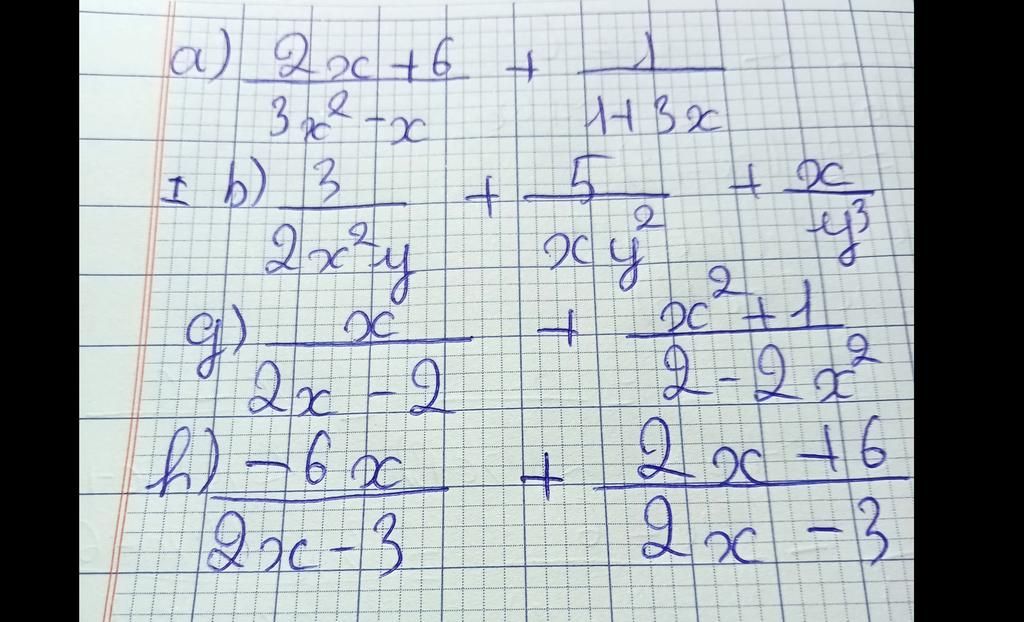 a) \frac{2x+6}{3x^2-x} + \frac{1}{1+3x}
I b) \frac{3}{2x^2y} + \frac{5}{xy^2} + \frac{x}{y^3}
g) \frac{x}{2x-2} + \frac{x^2+1}{2-2x^2}
h) \frac{-6x}{2x-3} + \frac{2x+6}{2x-3}